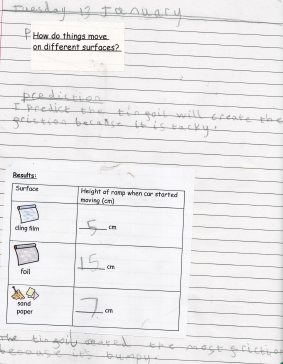 Tuesday 13 January
P
How do things move
on different surfaces?
prediction
I Predict the tin goil will create the
griction because it is tacky.
Results:
Surface
Height of ramp when car started
moving (cm)
cling film
5 cm
foil
15 cm
sand
paper
7 cm
the tin goil the most grictio
because it is bumpy.